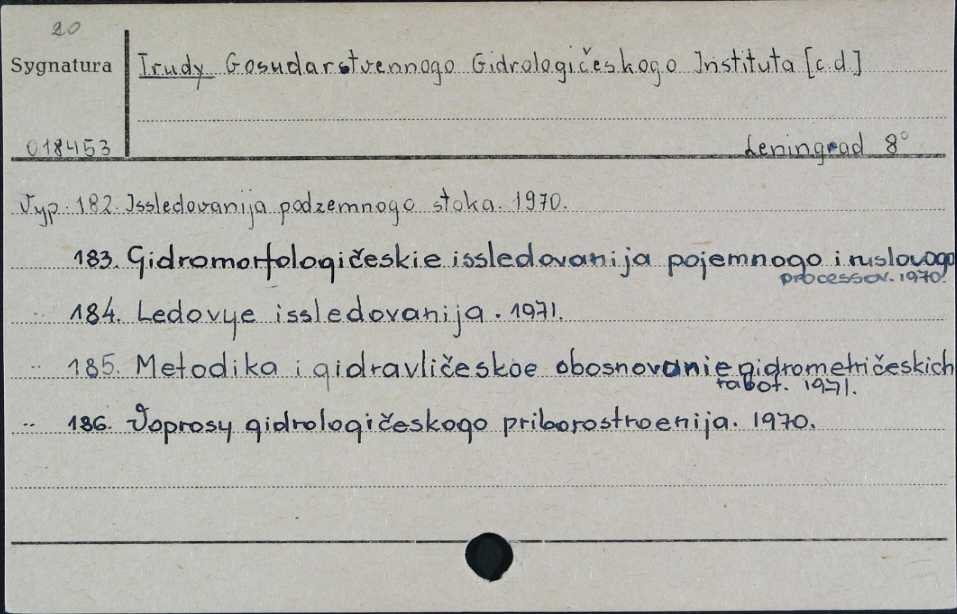 20
Sygnatura
Trudy Gosudarstvennogo Gidrologičeskogo Instituta [c.d.]
018453
Leningrad 8°
Vyp. 182. Issledovanija podzemnogo stoka. 1970.
183. Gidromorfologičeskie issledovanija pojemnogo i ruslovogo
processov. 1970.
-"- 184. Ledovye issledovanija. 1971.
-"- 185. Metodika i gidravličeskoe obosnovanie gidrometričeskich
rabot. 1971.
-"- 186. Voprosy gidrologičeskogo priborostroenija. 1970.